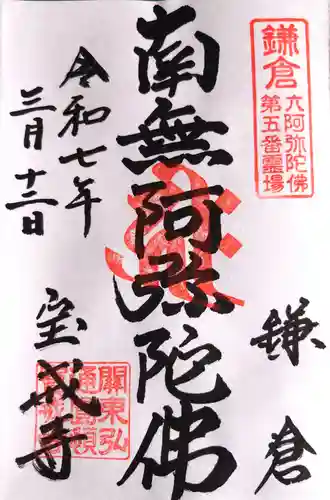 鎌倉
六阿弥陀佛
第五番霊場
鎌倉
南無阿弥陀佛
令和七年
三月十二日
宝戒寺
關東弘
通圓頓